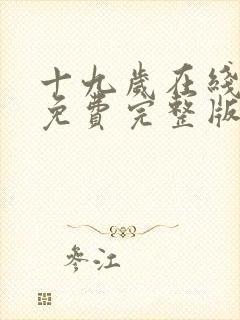 十九歲在綫
免費完整版
參江